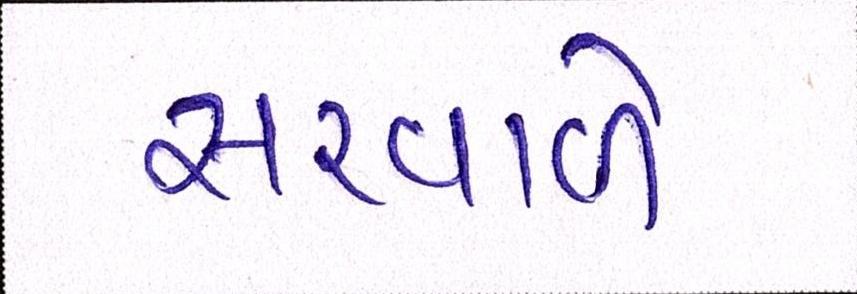 સરવાળે